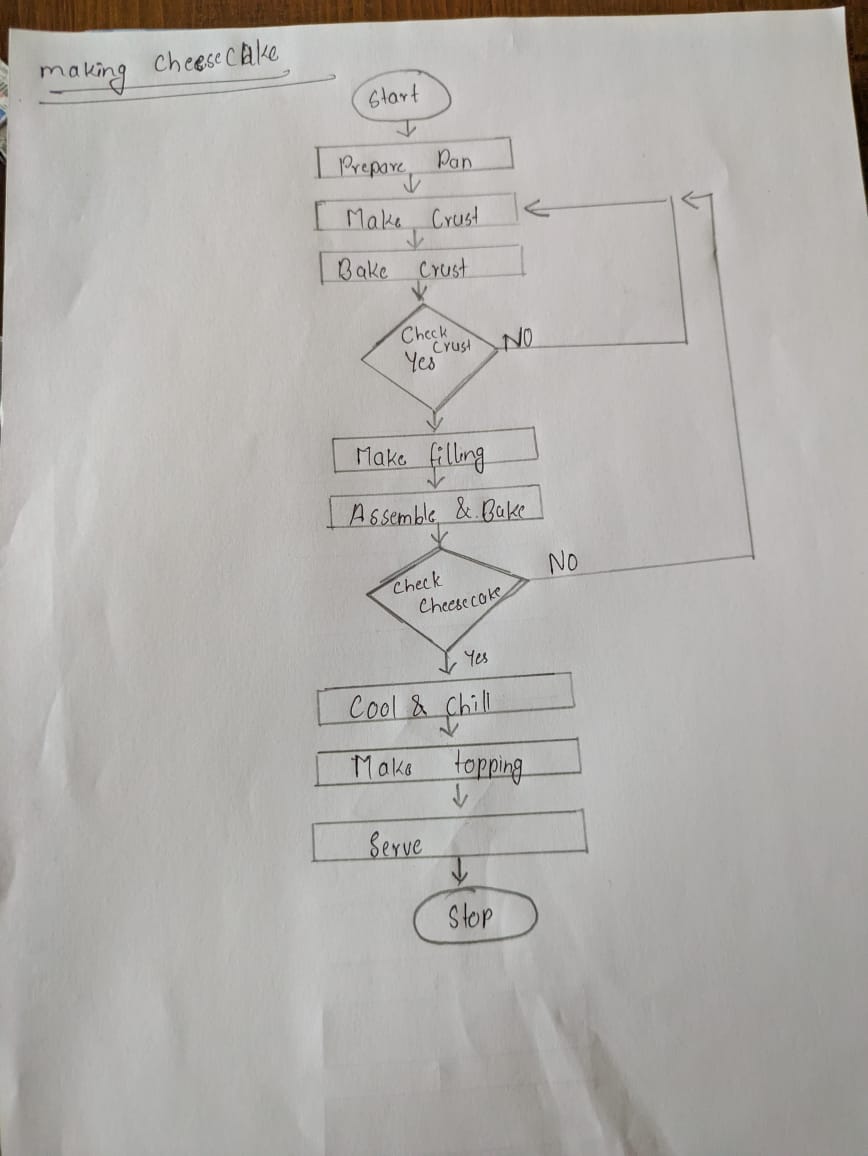 making cheesecake
Start
Prepare Pan
Make Crust
Bake Crust
Check
Crust
Yes
NO
Make filling
Assemble & Bake
Check
Cheesecake
NO
Yes
Cool & Chill
Make topping
Serve
Stop